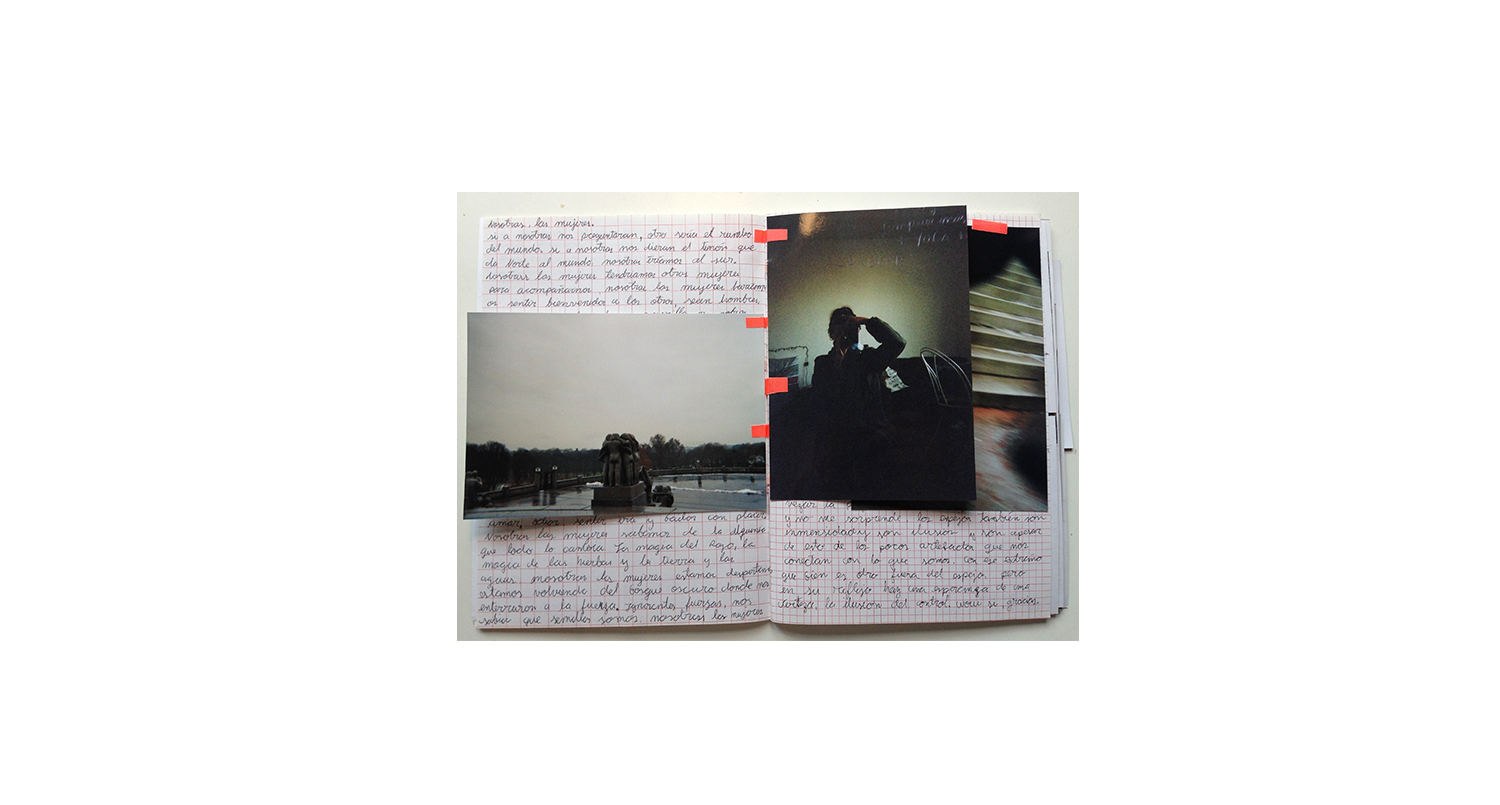 Nosotras, las mujeres.
si a nosotras nos preguntaran, otro sería el rumbo
del mundo. si a nosotras nos dieran el timón que
da Norte al mundo nosotras iríamos al sur.
Nosotras las mujeres tendríamos otras mujeres
para acompañarnos nosotras las mujeres
os sentir bienvenidos a los otros, sean hombres
amar, sentir ira y con placer.
Nosotras las mujeres sabemos de la
que todo lo La magia del la
magia de las hierbas y la tierra y las
aguas nosotras las mujeres estamos
estamos volviendo del bosque oscuro donde nos
enterraron a la fuerza. ignorantes fuerzas, nos
sabía que semillas somos, nosotras las mujeres
la
y no me sorprende los espejos también son
inmensidad y son ilusión y son apesar
de esto de los pocos artefactos que nos
conectan con lo que somos con ese extremo
que bien es otro fuera del espejo pero
en su reflejo hay una esperanza de una
certeza, la ilusión del control. si, gracias.